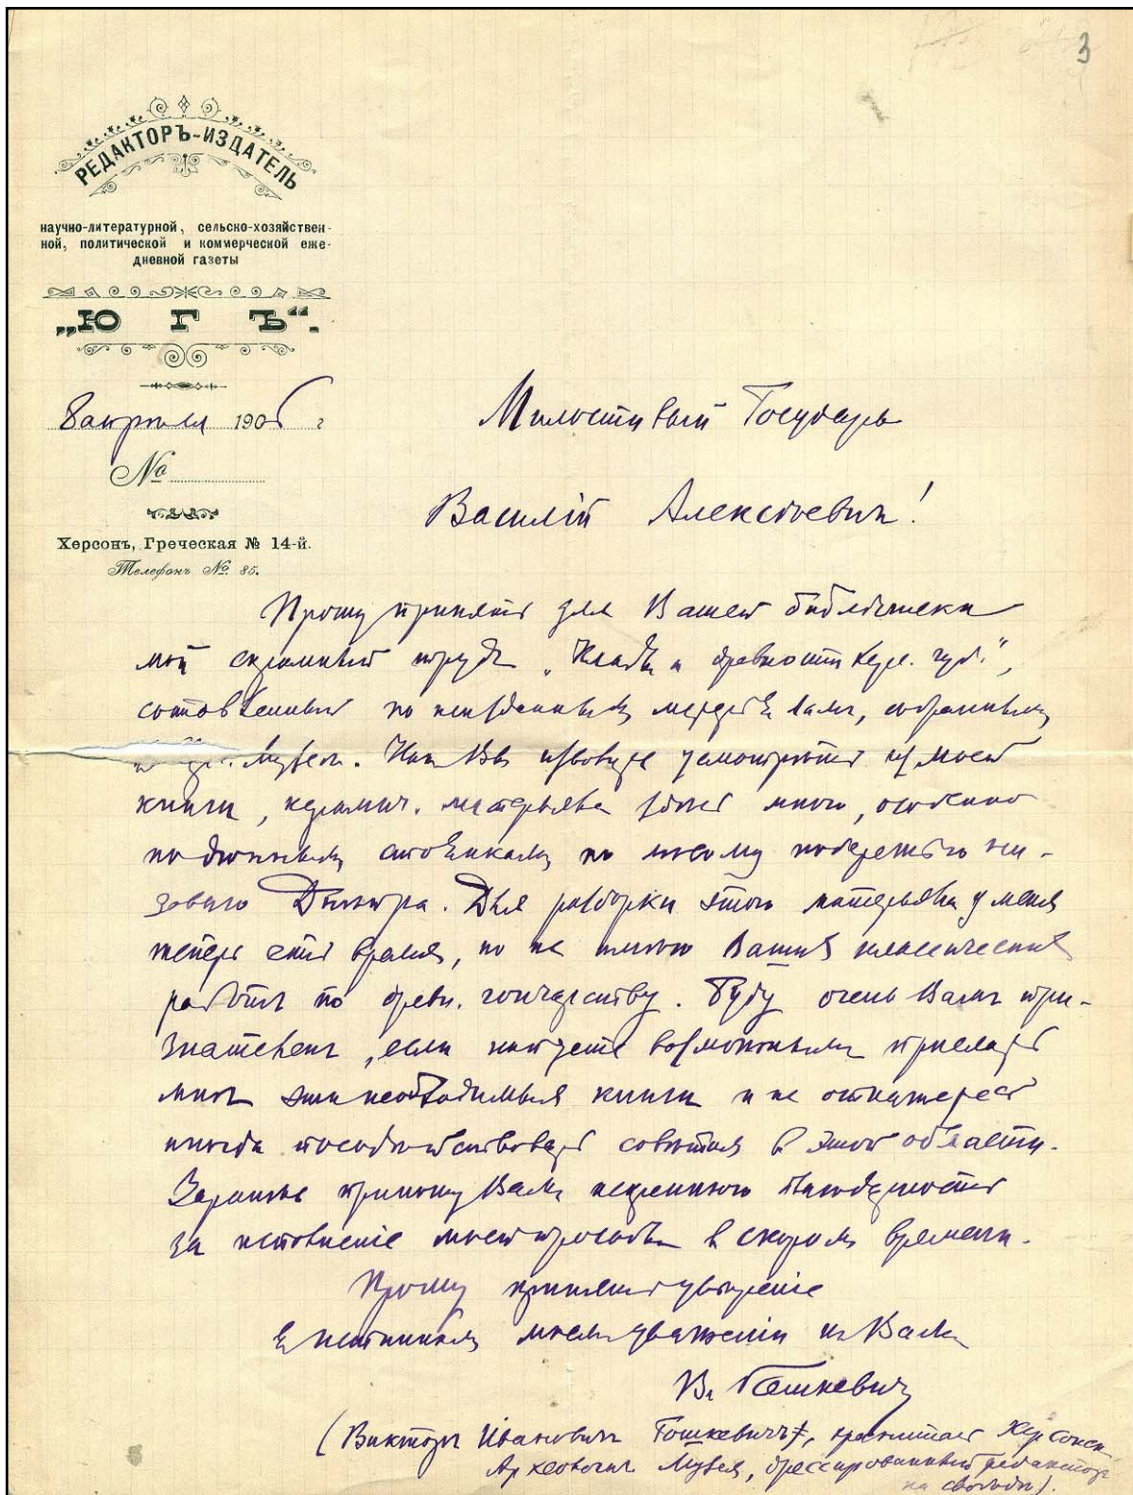 3
РЕДАКТОРЪ-ИЗДАТЕЛЬ
научно-литературной, сельско-хозяйствен-
ной, политической и коммерческой еже-
дневной газеты
„ЮГЪ“.
8 апреля 1905 г
№
Херсонъ, Греческая № 14-й.
Телефонъ №. 85.
Милостивый Государь
Василій Алексѣевичъ!
Прошу принять для Вашей библіотеки
мой скромный трудъ „Клады и древности Херс. губ.“,
составленный по неизданнымъ матерьяламъ, собраннымъ
Музеемъ. Какъ Вы изволите усмотрѣть изъ моей
книги, керамич. матерьяла здѣсь много, особенно
по дюннымъ стоянкамъ по лѣвому побережью ни-
зового Днѣпра. Для разборки этого матерьяла у меня
теперь есть время, но не имѣю Вашихъ классическихъ
работъ по древн. гончарству. Буду очень Вамъ при-
знателенъ, если найдете возможнымъ прислать
мнѣ эти необходимыя книги и не откажетесь
иногда посодѣйствовать совѣтомъ в этой области.
Заранѣе приношу Вамъ искреннюю благодарность
за исполненіе моей просьбы в скоромъ времени.
Прошу принять увѣреніе
в истинномъ моемъ уваженіи къ Вамъ
В. Гошкевичъ
(Викторъ Ивановичъ Гошкевичъ, хранитель Херсонск.
Археологич. Музея, редакторъ
на свободѣ).